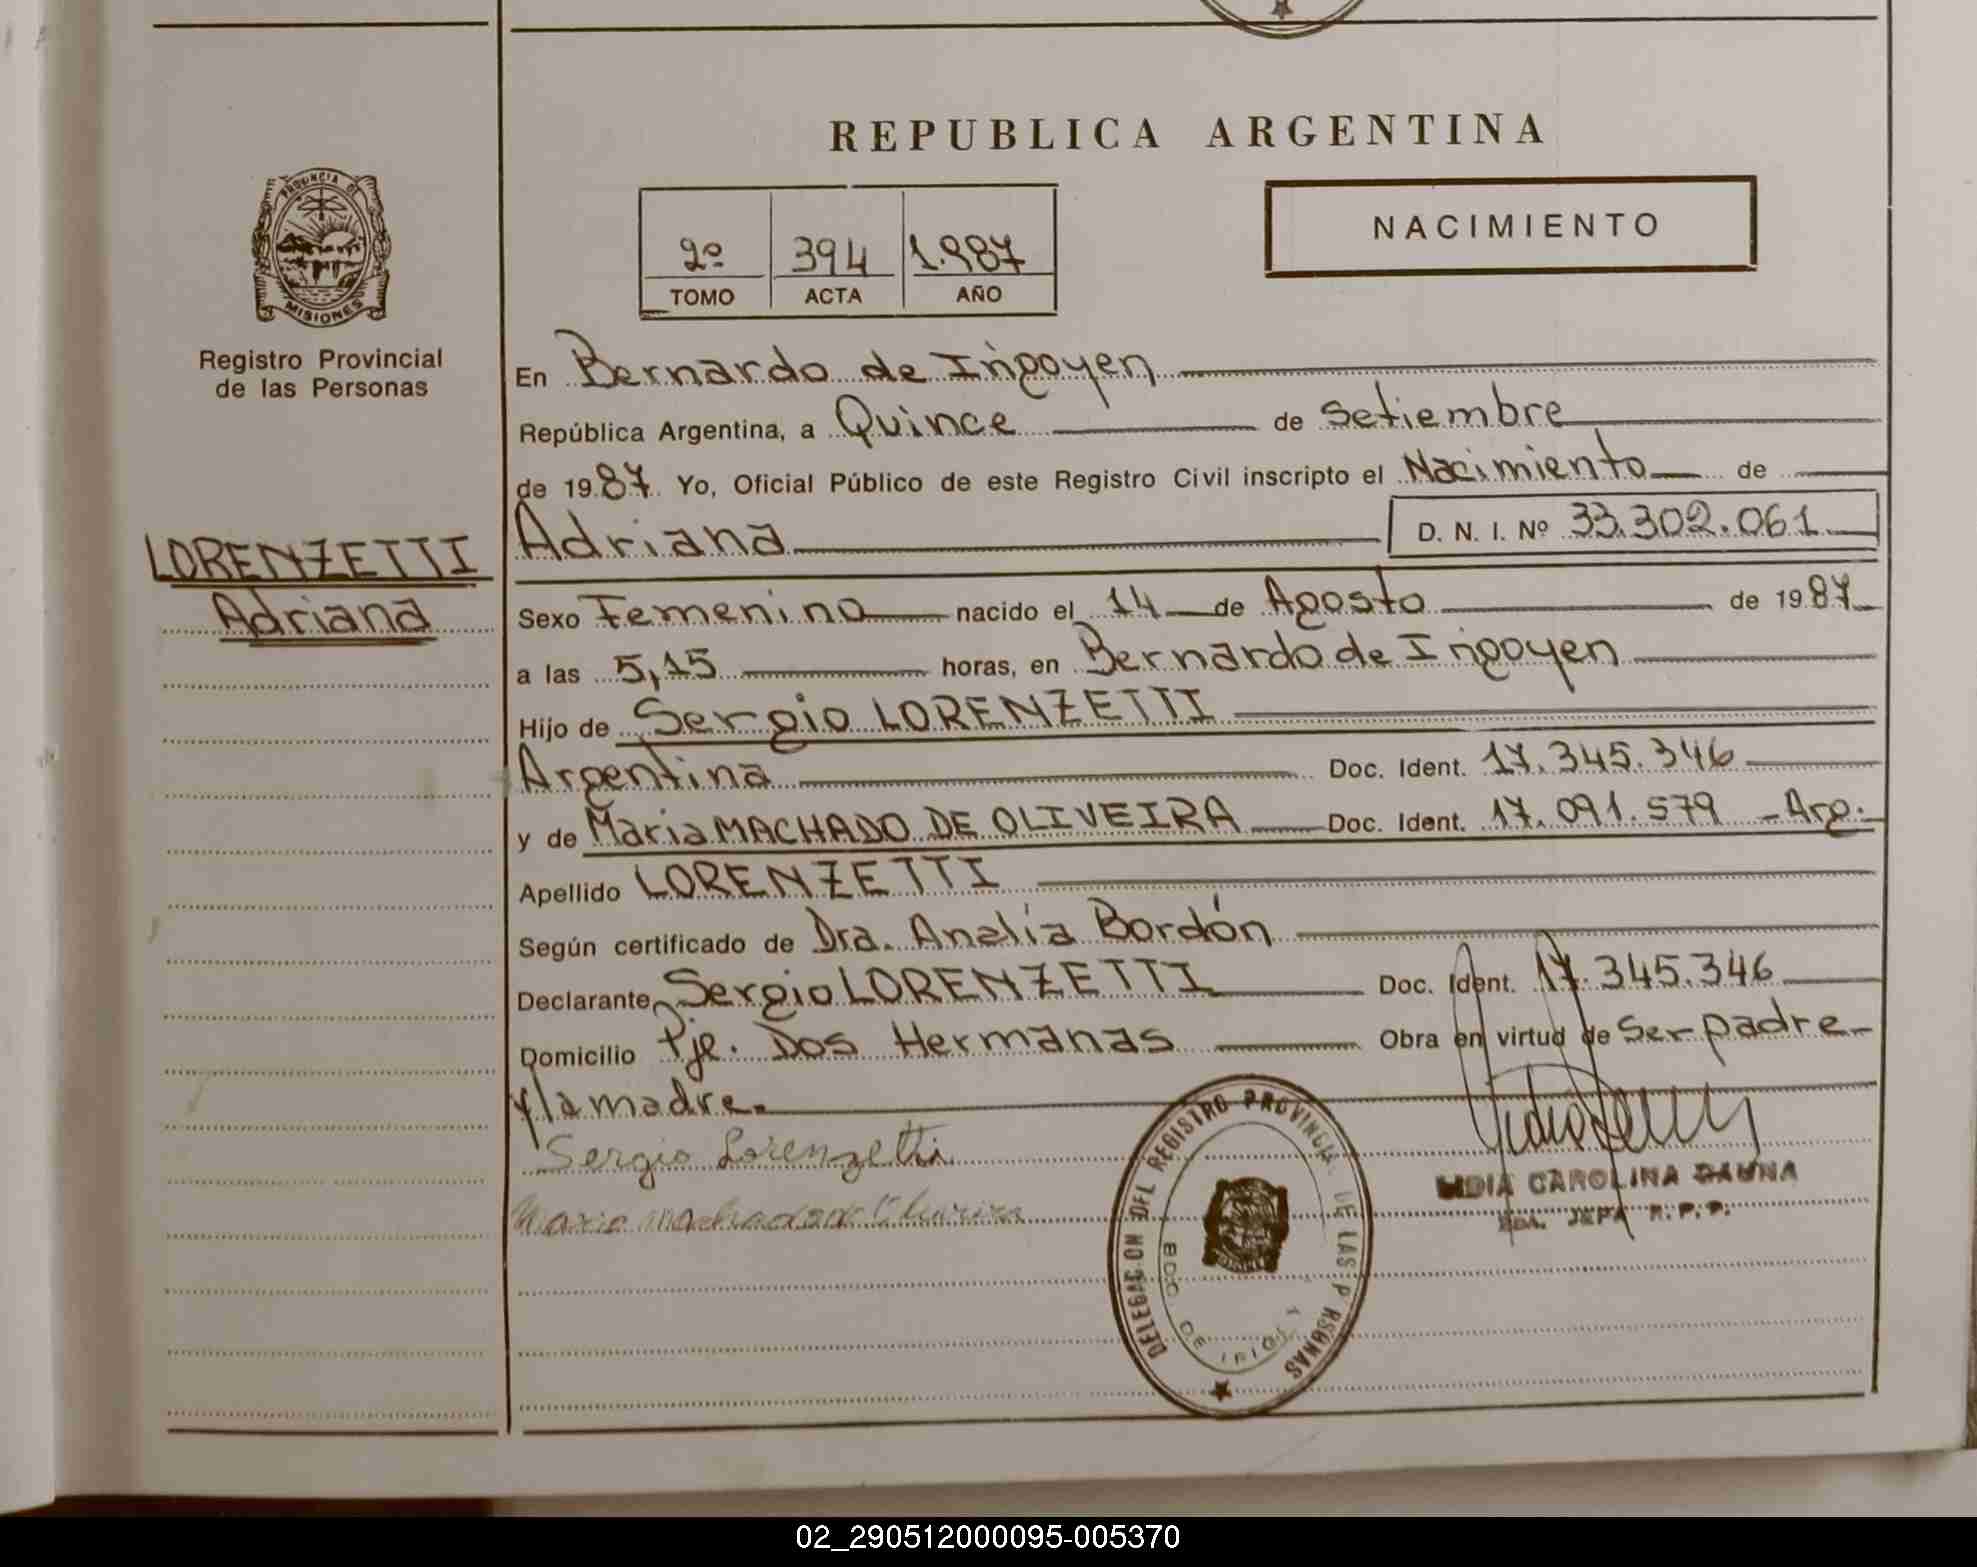 REPUBLICA ARGENTINA
PROVINCIA DE
MISIONES
Registro Provincial
de las Personas
2º 394 1.987
TOMO ACTA AÑO
NACIMIENTO
LORENZETTI
Adriana
En Bernardo de Irigoyen
República Argentina, a Quince de Setiembre
de 1987. Yo, Oficial Público de este Registro Civil inscripto el Nacimiento de
Adriana D. N. I. Nº 33.302.061
Sexo Femenino nacido el 14 de Agosto de 1987
a las 5,15 horas, en Bernardo de Irigoyen
Hijo de Sergio LORENZETTI
Argentina Doc. Ident. 17.345.346
y de Maria MACHADO DE OLIVEIRA Doc. Ident. 17.091.579 - Arg.
Apellido LORENZETTI
Según certificado de Dra. Analía Bordón
Declarante, Sergio LORENZETTI Doc. Ident. 17.345.346
Domicilio Pje. Dos Hermanas Obra en virtud de Ser padre
y la madre.
Sergio Lorenzetti
Maria machado de Oliveira
DELEGACION DEL REGISTRO PROVINCIAL DE LAS P RSONAS
BDO DE
LIDIA CAROLINA
JEFA R. P. P.
02_290512000095-005370